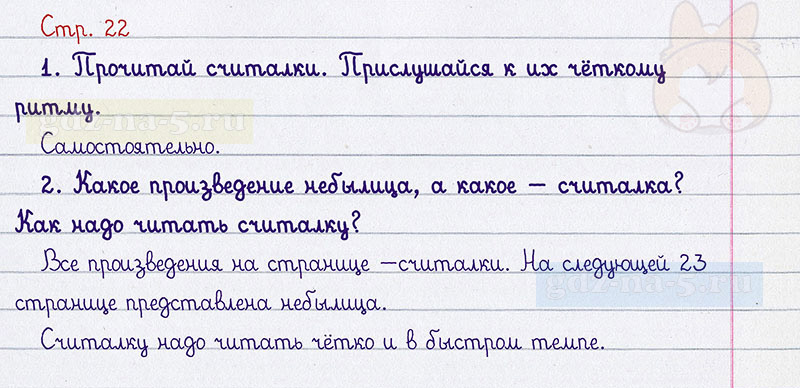 Стр. 22
1. Прочитай считалки. Прислушайся к их чёткому
ритму.
gdz-na-5.ru
Самостоятельно.
2. Какое произведение небылица, а какое – считалка?
Как надо читать считалку?
Все произведения на странице –считалки. На следующей 23
gdz-na-5.ru
странице представлена небылица.
Считалку надо читать чётко и в быстром темпе.